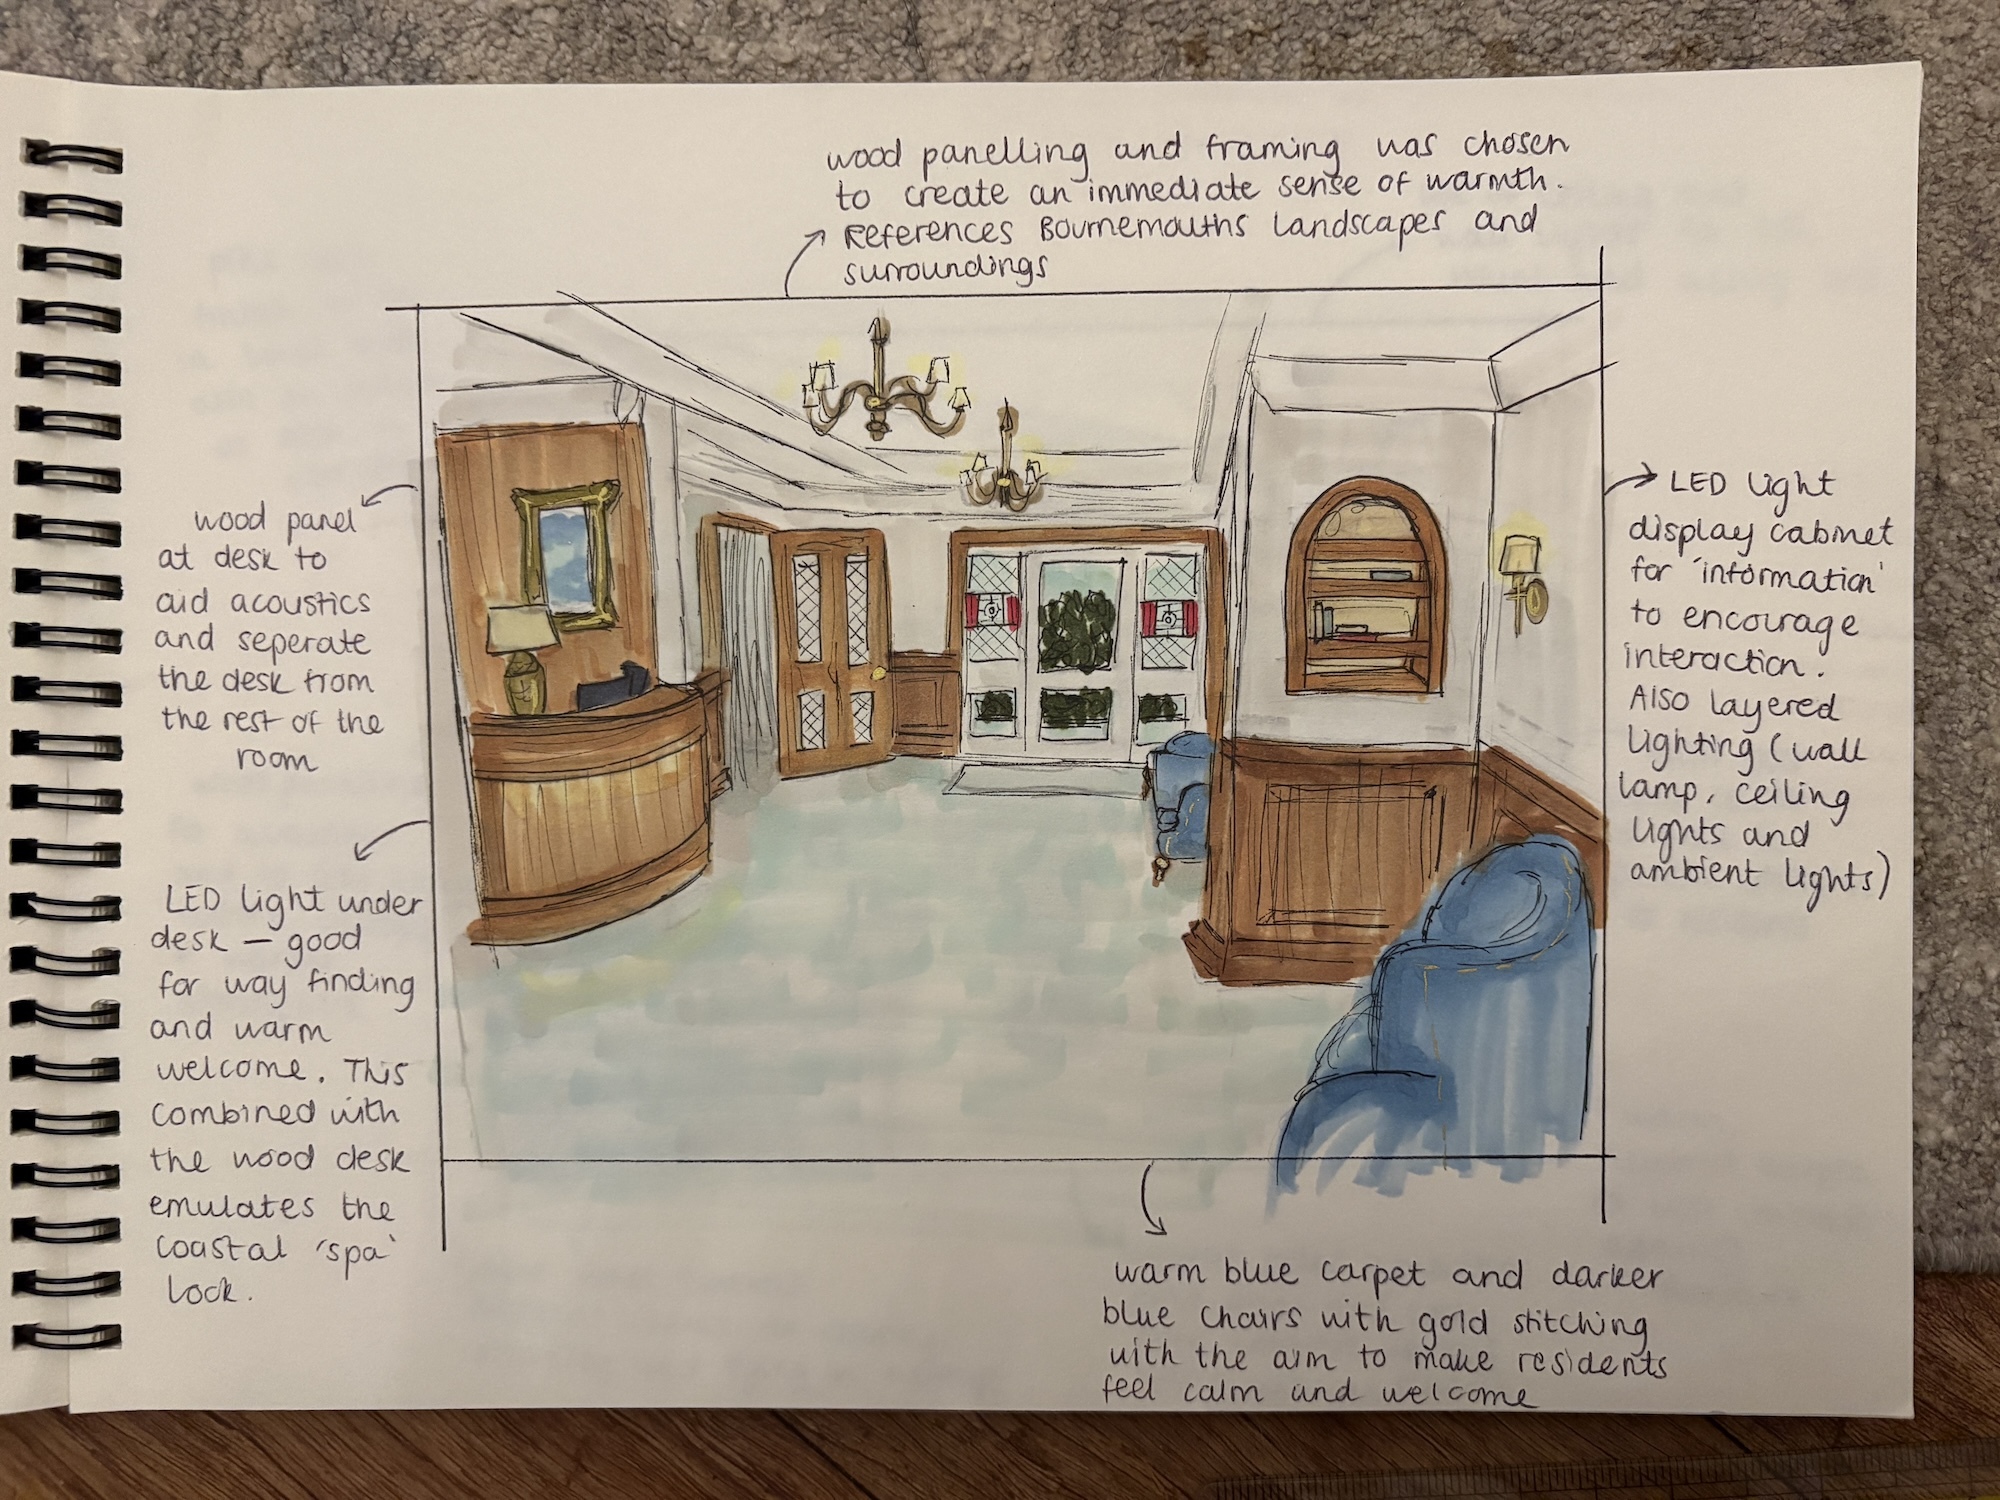 wood panelling and framing was chosen
to create an immediate sense of warmth.
References Bournemouths landscapes and
surroundings
wood panel
at desk to
aid acoustics
and seperate
the desk from
the rest of the
room
LED light under
desk — good
for way finding
and warm
welcome. This
combined with
the wood desk
emulates the
coastal 'spa'
look.
LED light
display cabinet
for 'information'
to encourage
interaction.
Also layered
lighting (wall
lamp, ceiling
lights and
ambient lights)
warm blue carpet and darker
blue chairs with gold stitching
with the aim to make residents
feel calm and welcome